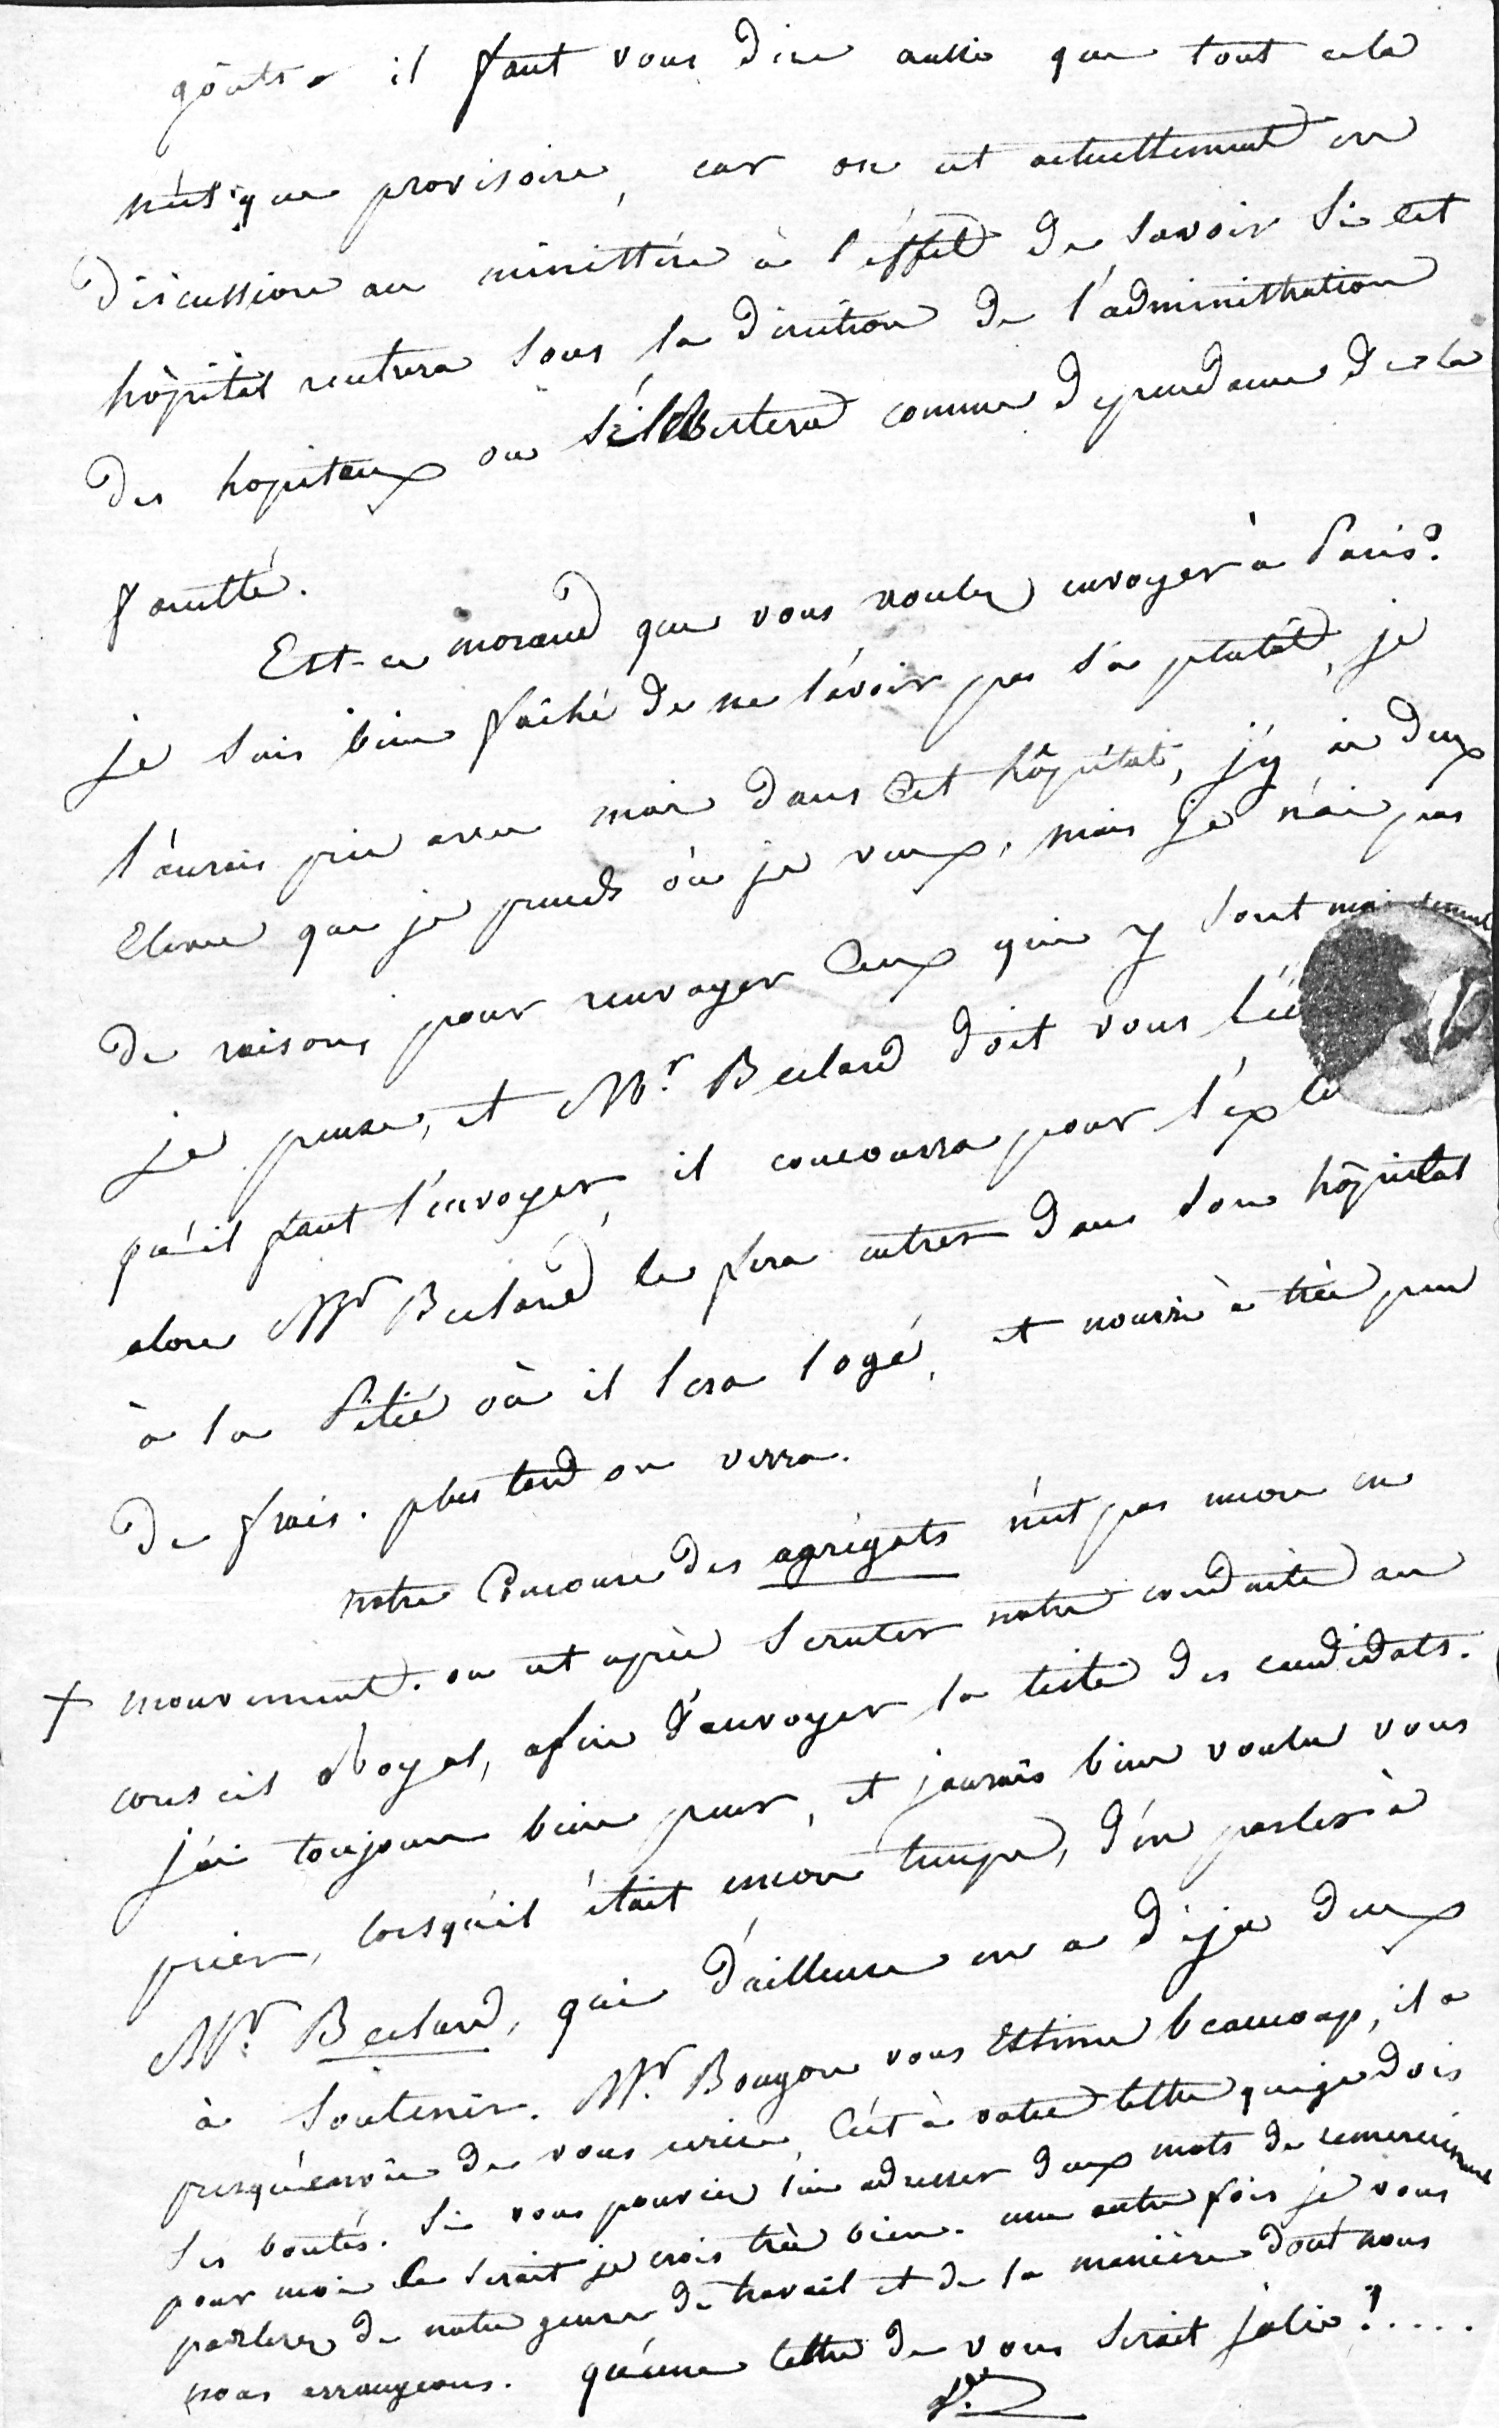 goûts. il faut vous dire aussi que tout cela
n'est que provisoire, car on est actuellement en
discussion au ministère à l'effet de savoir si cet
hôpital rentrera sous la direction de l'administration
des hopitaux ou s'il restera comme dependance de la
faculté.
Est-ce morand que vous voulez envoyer à Paris?
je suis bien fâché de ne l'avoir pas su plutôt, je
l'aurais pris avec moi dans cet hôpital, j'y ai deux
Eleves que je prends où je veux, mais je n'ai pas
de raisons pour renvoyer ceux qui y sont maintenant
je pense, et Mr. Beclard doit vous
qu'il faut l'envoyer, il concourra pour
alors Mr Beclard le fera entrer dans son hôpital
à la Pitié où il sera logé, et nourri à très peu
de frais. plus tard on verra.
notre Concours des agrégats n'est pas encore en
+ mouvement. on est après scruter notre conduite au
conseil Royal, afin d'envoyer la liste des candidats.
j'ai toujours bien peur, et j'aurais bien voulu vous
prier, lorsqu'il était encore temps, d'en parler à
Mr. Beclard, qui d'ailleurs en a déja deux
à soutenir. Mr. Bougon vous Estime beaucoup, il a
presqu'envie de vous ecrire, c'est à votre lettre que je dois
ses bontés. si vous pouviez lui adresser deux mots de remerciement
pour moi ce serait je crois très bien. une autre fois je vous
parlerez de notre genre de travail et de la manière dont nous
nous arrangeons. qu'une lettre de vous serait jolie!.....